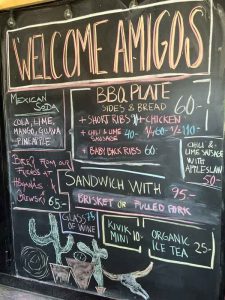 WELCOME AMIGOS
MEXICAN
SODA
COLA, LIME,
MANGO, GUAVA
PINEAPPLE
BBQ PLATE
SIDES & BREAD 60-
+ SHORT RIBS + CHICKEN
+ CHILI & LIME
SAUSAGE
+ BABY BACK RIBS 60
CHILI &
LIME SAUSAGE
WITH
APPLESLAW
50-
BEER FROM OUR
FRIENDS AT
65-
SANDWICH WITH 95-
BRISKET OR PULLED PORK
GLASS
OF WINE
KIVIK
MINI 10-
ORGANIC
ICE TEA 25-